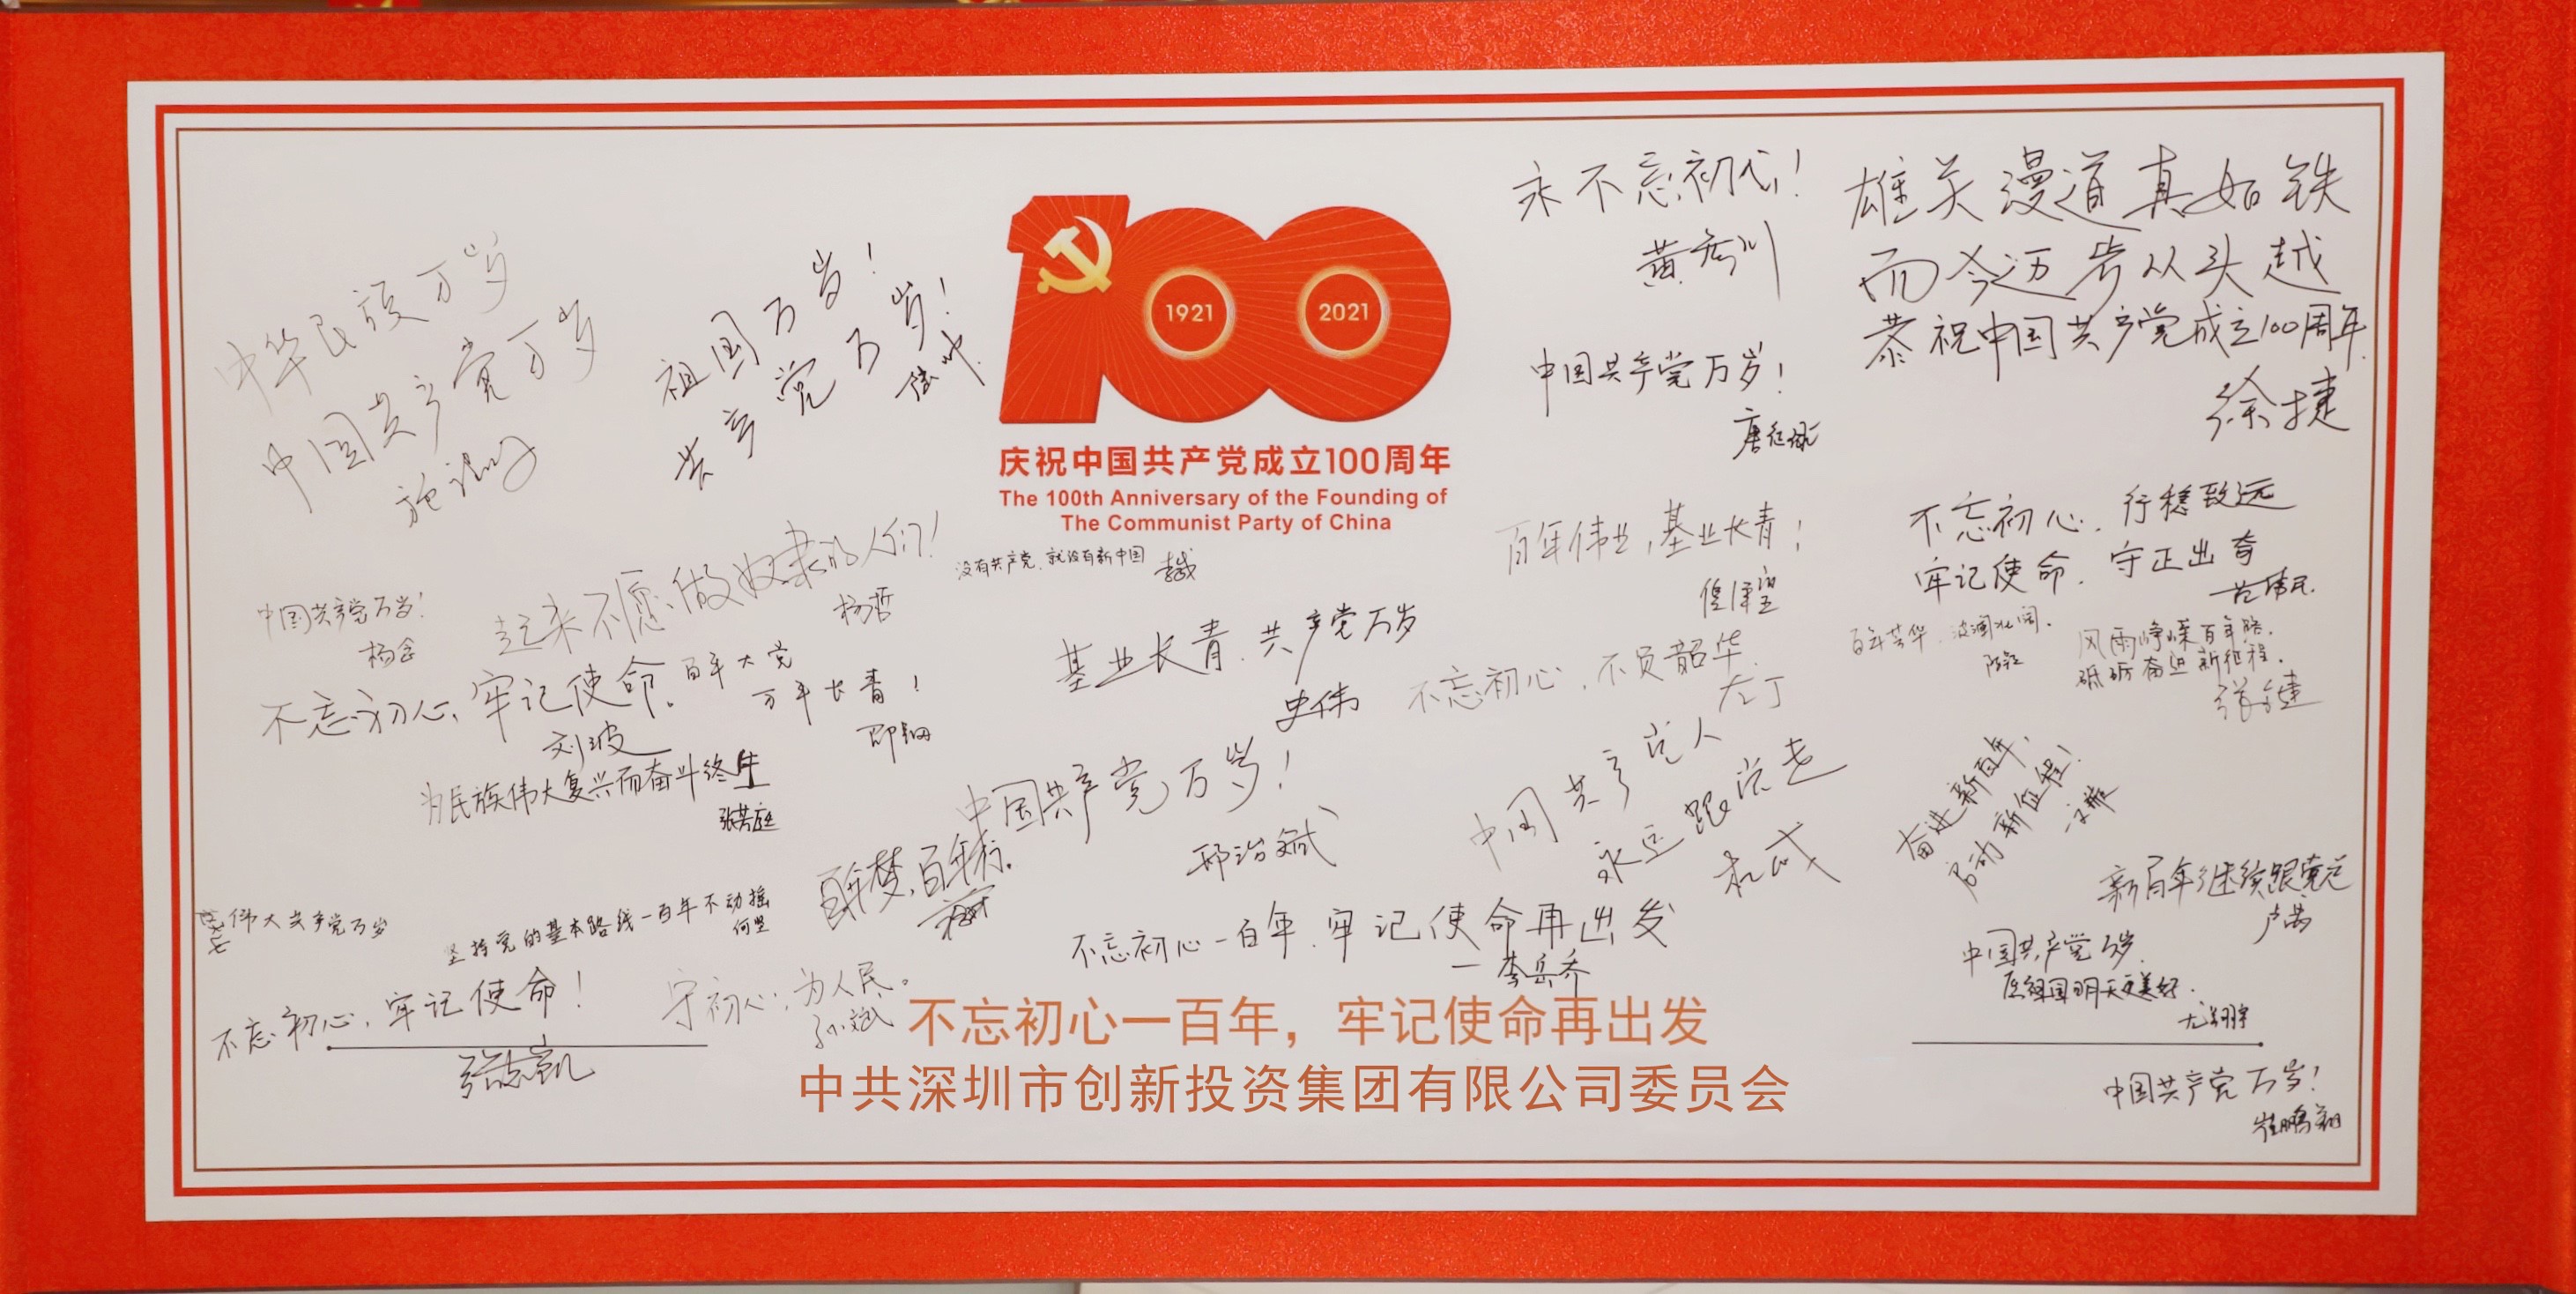 中华民族万岁
中国共产党万岁
祖国万岁!
共产党万岁!
1921
2021
庆祝中国共产党成立100周年
The 100th Anniversary of the Founding of
The Communist Party of China
永不忘初心!
雄关漫道真如铁
而今迈步从头越
恭祝中国共产党成立100周年
徐捷
中国共产党万岁!
没有共产党、就没有新中国
百年伟业,基业长青!
不忘初心、行稳致远
牢记使命、守正出奇
中国共产党万岁!
杨念
起来不愿做奴隶的人们!
杨哲
基业长青、共产党万岁
史伟
不忘初心,不负韶华
左丁
百年芳华、波澜壮阔。
风雨峥嵘百年路,
砥砺奋进新征程。
张健
不忘初心、牢记使命。
刘波
百年大党
万年长青!
为民族伟大复兴而奋斗终生
张芳庭
中国共产党万岁!
邢治斌
百年梦,百年行。
中国共产党人
永远跟党走
奋进新百年,
启动新征程!
新百年继续跟党走
卢茜
伟大共产党万岁
坚持党的基本路线一百年不动摇
何坚
不忘初心一百年、牢记使命再出发
一李岳乔
中国共产党万岁、
愿祖国明天更美好.
不忘初心,牢记使命!
张志凯
守初心,为人民。
孙斌
不忘初心一百年，牢记使命再出发
中共深圳市创新投资集团有限公司委员会
中国共产党万岁!
崔鹏翔